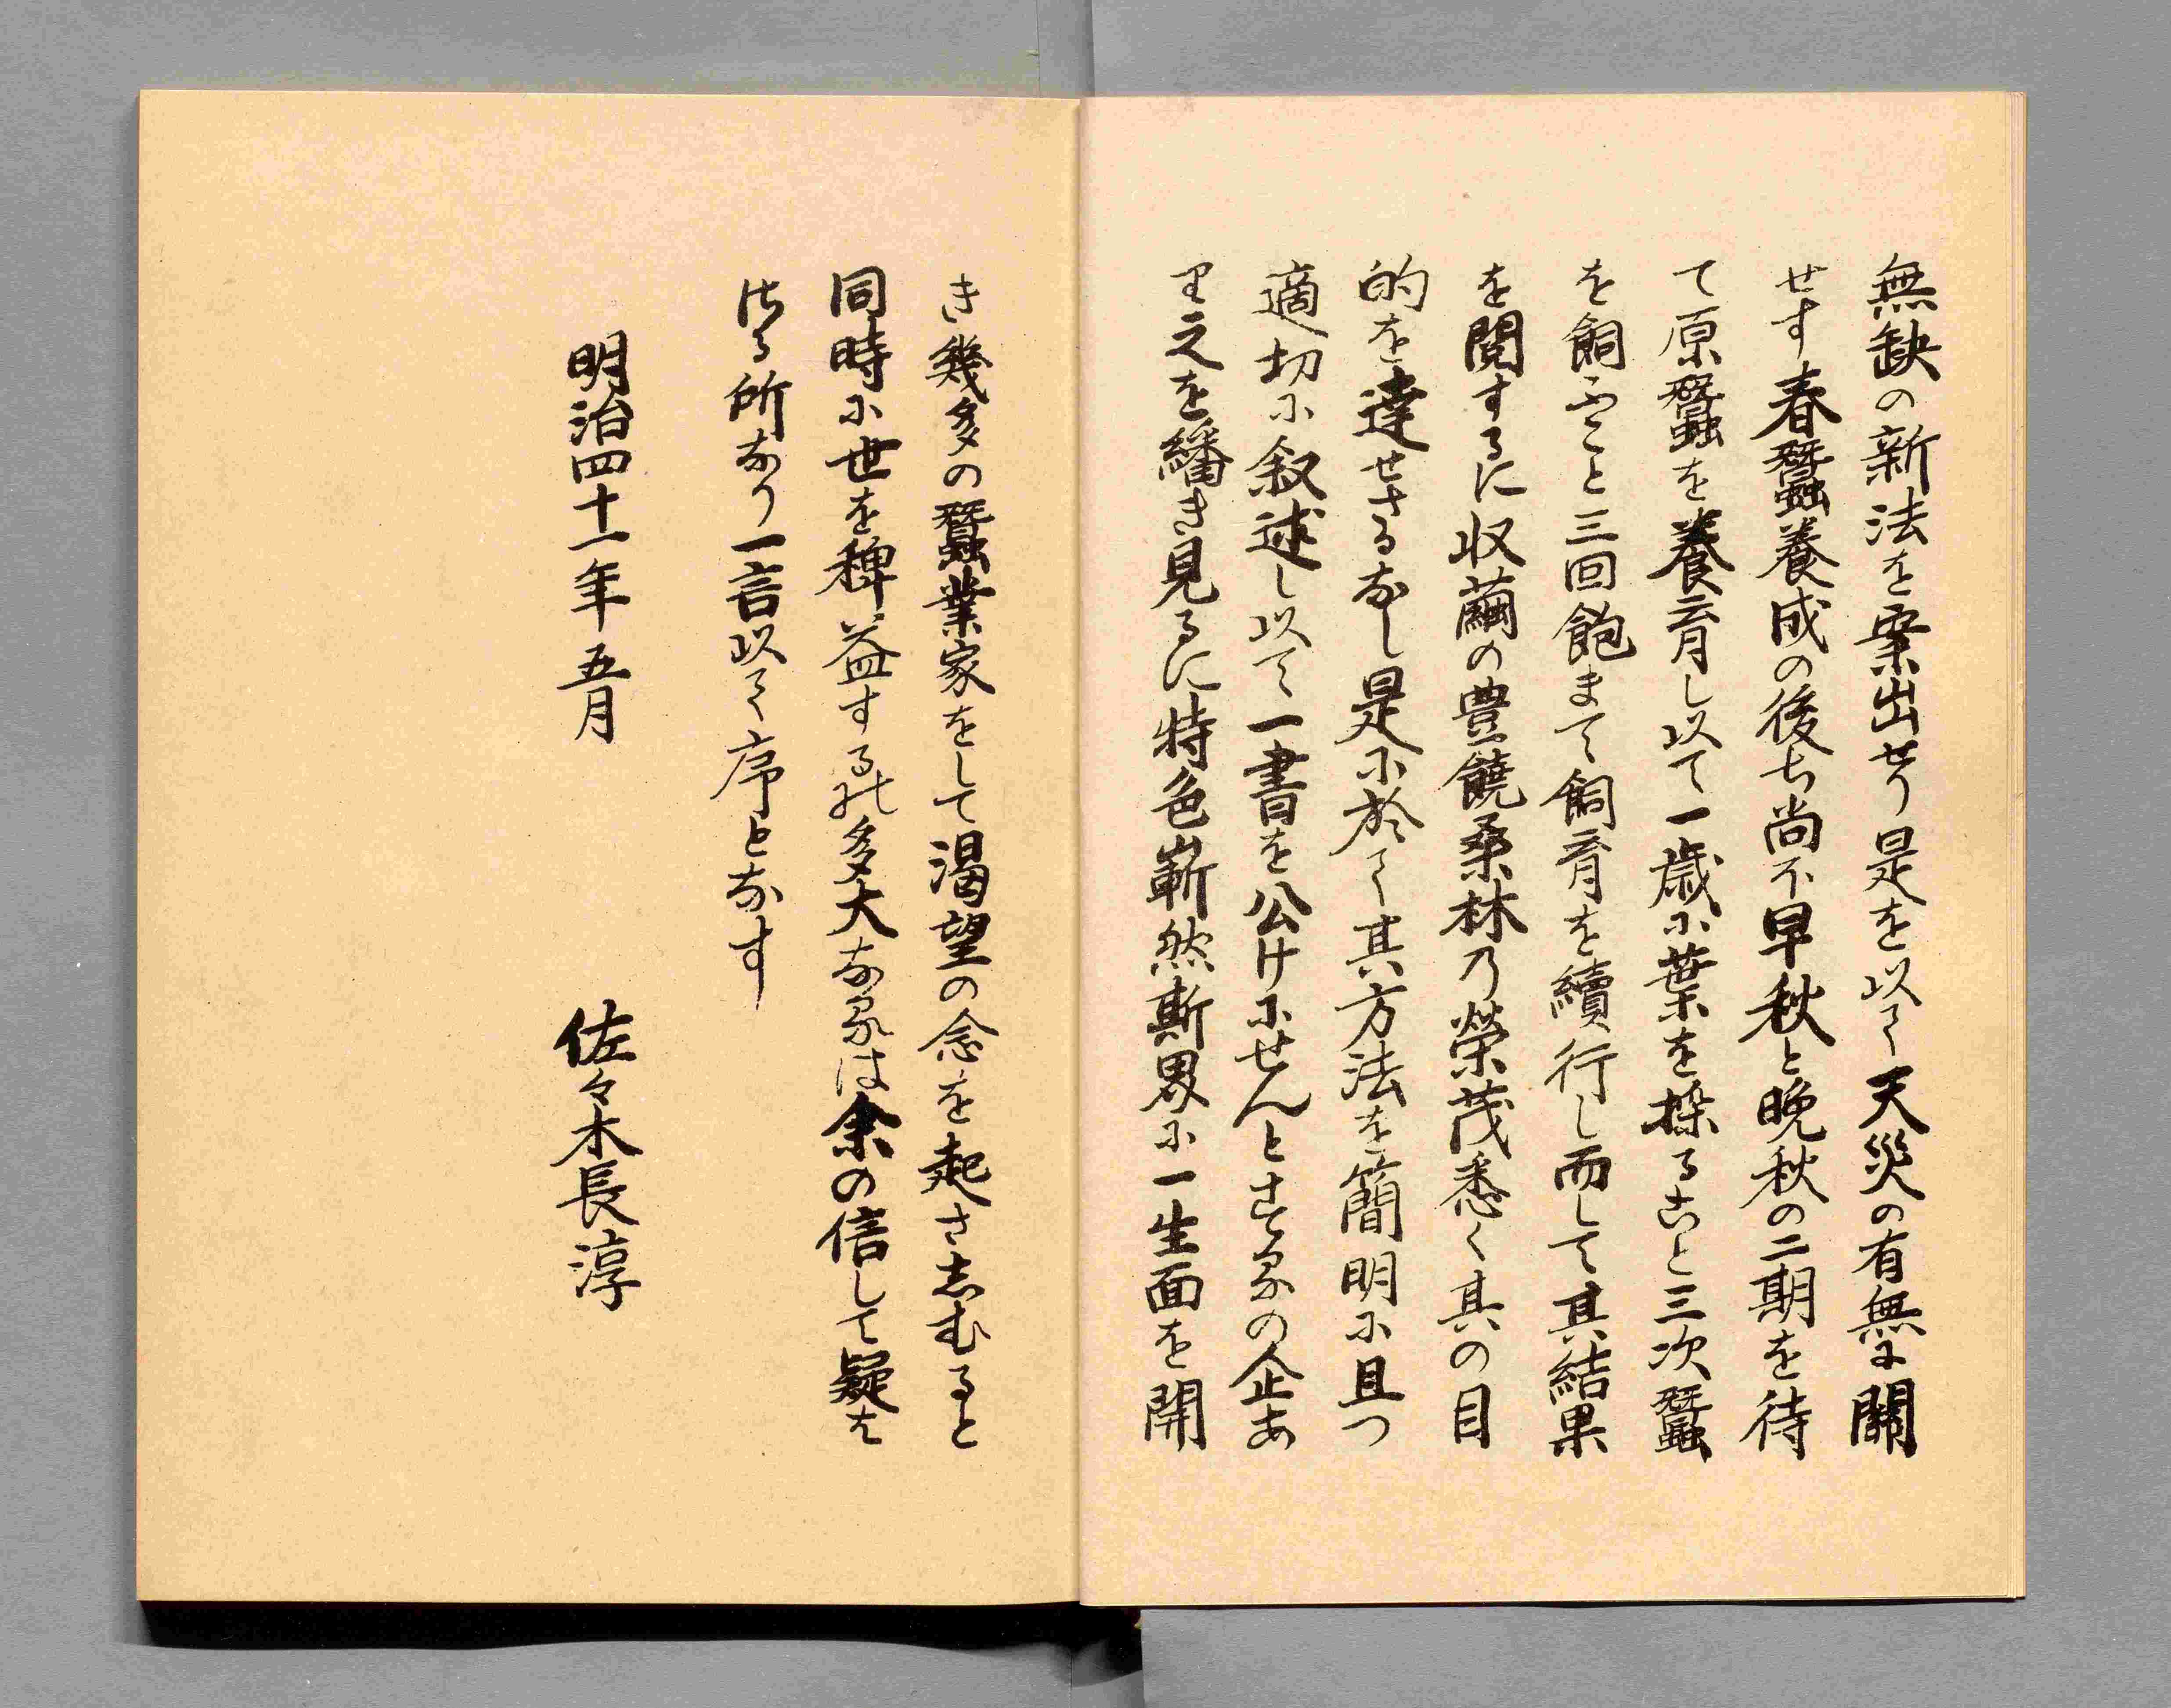 無缺の新法を案出せり是を以て天災の有無に關
せす春蠶養成の後ち尚不早秋と晩秋の二期を待
て原蠶を養育し以て一歳に葉を採ること三次蠶
を飼ふこと三回飽まて飼育を續行し而して其結果
を閲するに収繭の豊饒桑林乃榮茂悉く其の目
的を達せさるなし是に於て其方法を簡明に且つ
適切に叙述し以て一書を公けにせんとするの企あ
り之を繙き見るに特色嶄然斯界に一生面を開
き幾多の蠶業家をして渇望の念を起さしむると
同時に世を稗益するれ多大なるは余の信して疑を
はる所なり一言以て序となす
明治四十一年五月
佐々木長淳